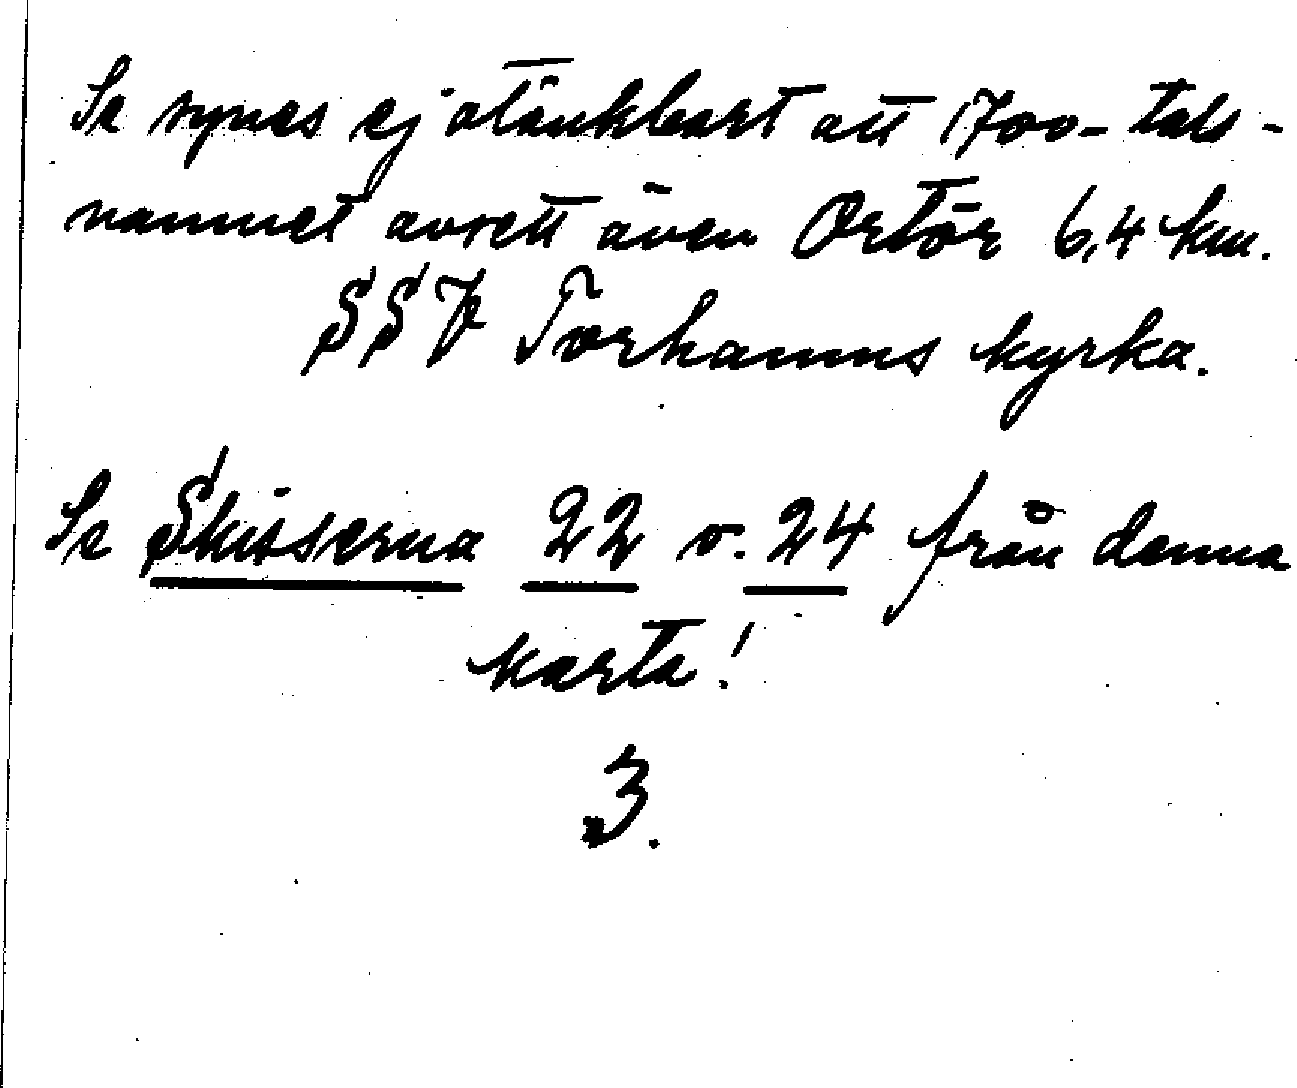 Se synes ej otänkbart att 1700-tals-
namnet avsett även Ortör 6,4 km.
SSV Torhamns kyrka.
Se Skisserna 22 o. 24 från denna
karta!
3.